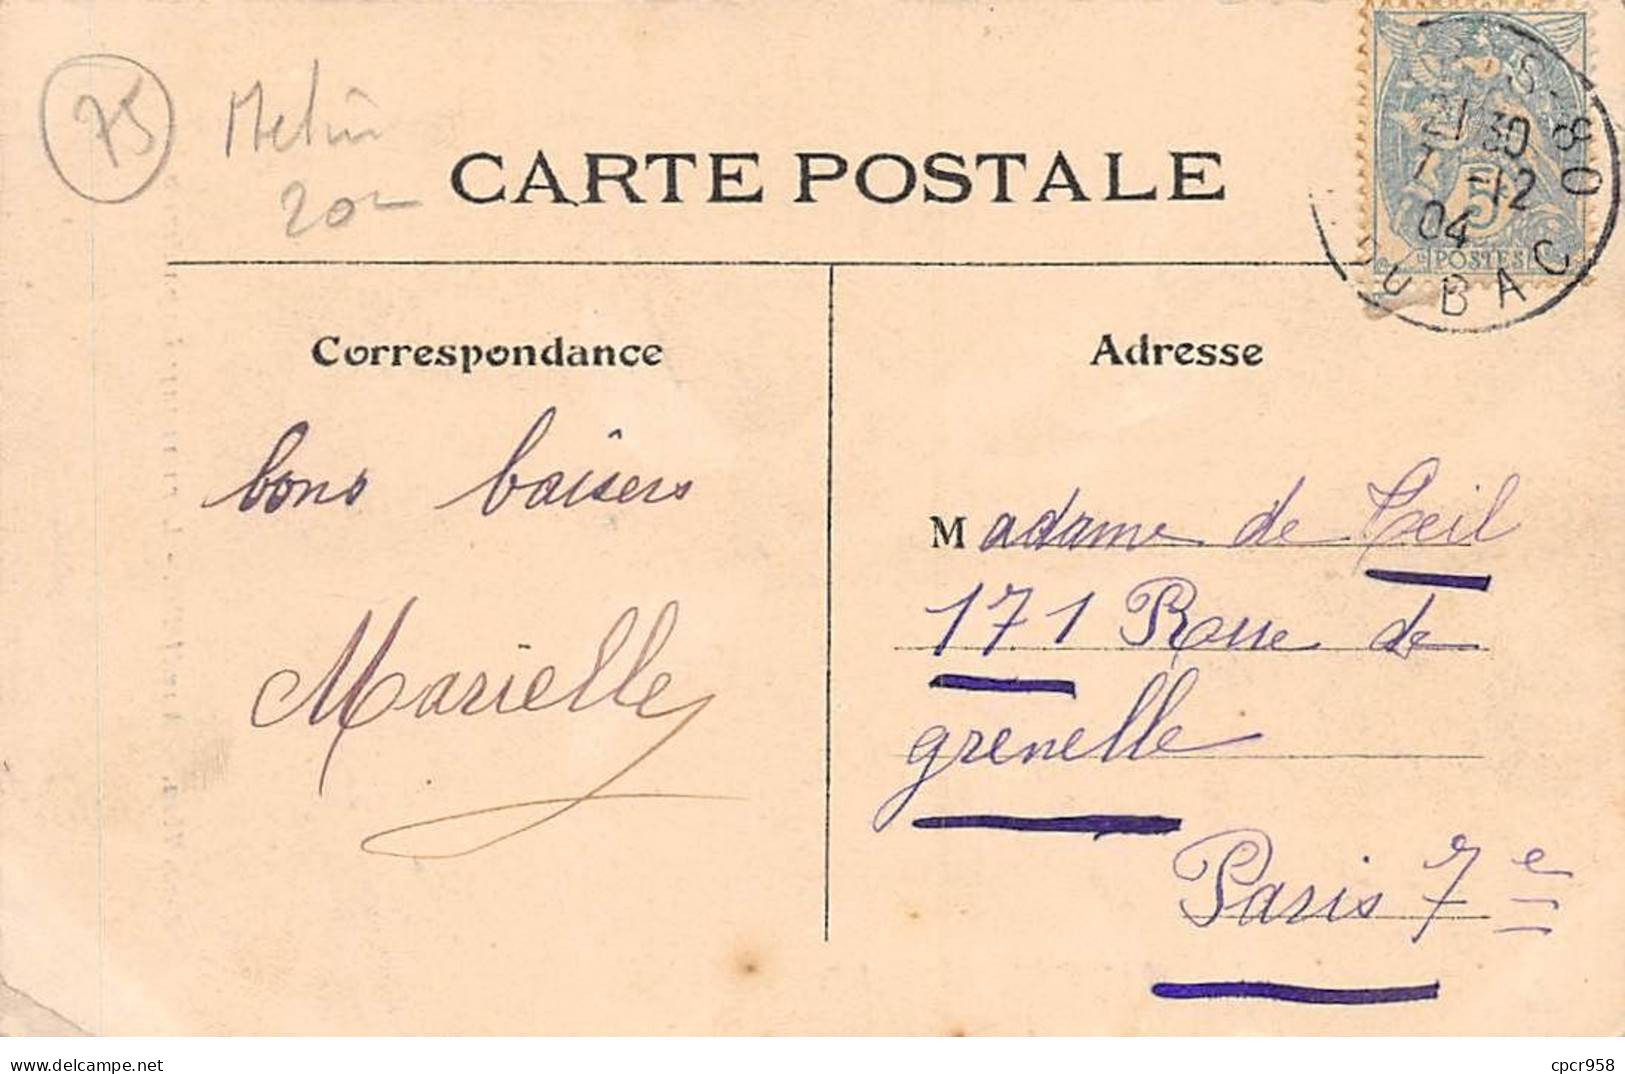 75
20
CARTE POSTALE
21 30
7 -12
04
S-80
DU BAC
5
POSTES
Correspondance
bons baisers
Marielle
Adresse
Madame de
171 Rue de
grenelle
Paris 7e
delcampe.net
cpcr958